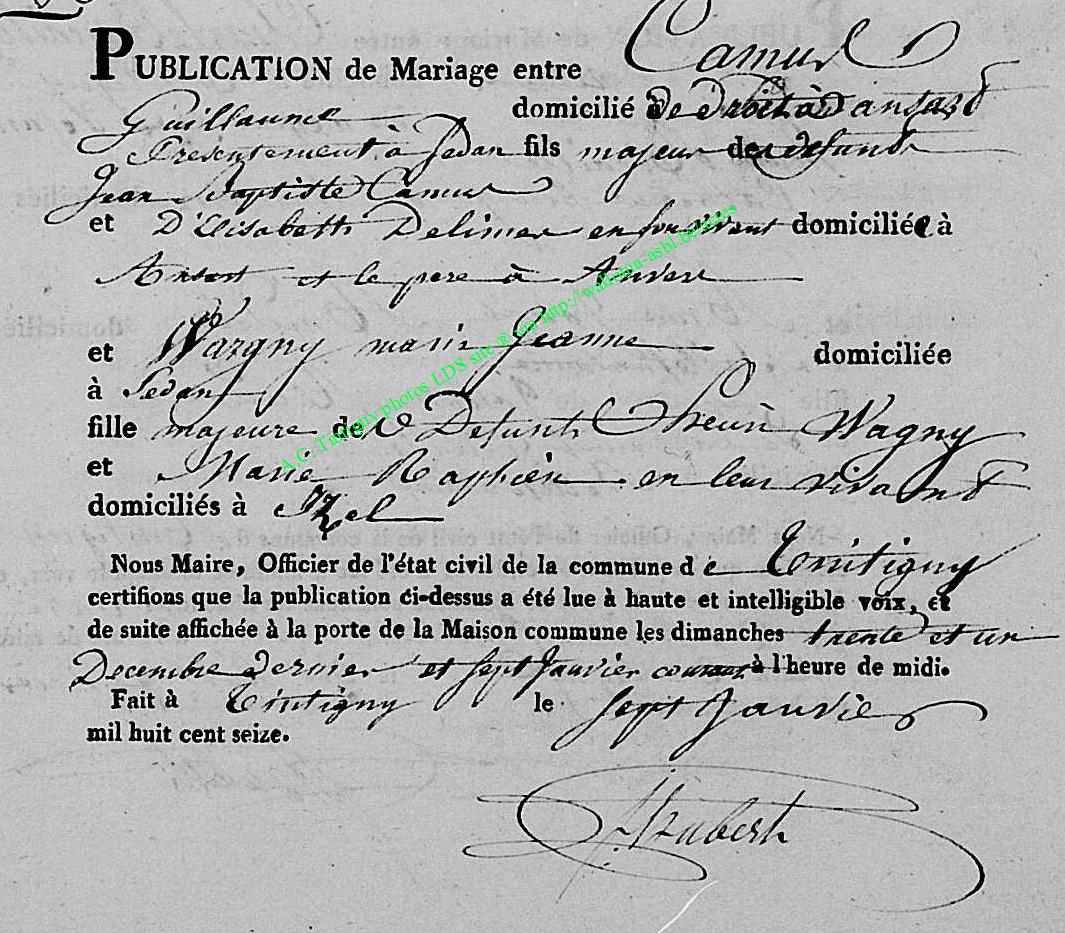 PUBLICATION de Mariage entre Camus
Guillaume domicilié de droit à Dansard
Presentement à Sedan fils majeur de defunt
Jean Baptiste Camus
et D'Elisabeth Delimer en son vivant domiciliée à
Ansart et le pere à Anvers
et Wargny marie Jeanne domiciliée
à Sedan
fille majeure de Defunts Wagny
et Marie en leur vivant
domiciliés à Izel
Nous Maire, Officier de l'état civil de la commune de Tintigny
certifions que la publication ci-dessus a été lue à haute et intelligible voix, et
de suite affichée à la porte de la Maison commune les dimanches trente et un
Decembre dernier et sept Janvier courant à l'heure de midi.
Fait à Tintigny le sept Janvier
mil huit cent seize.
Hubert
A.C. Tintigny photos LDS site ® via http://wallonia-asbl.be/actes